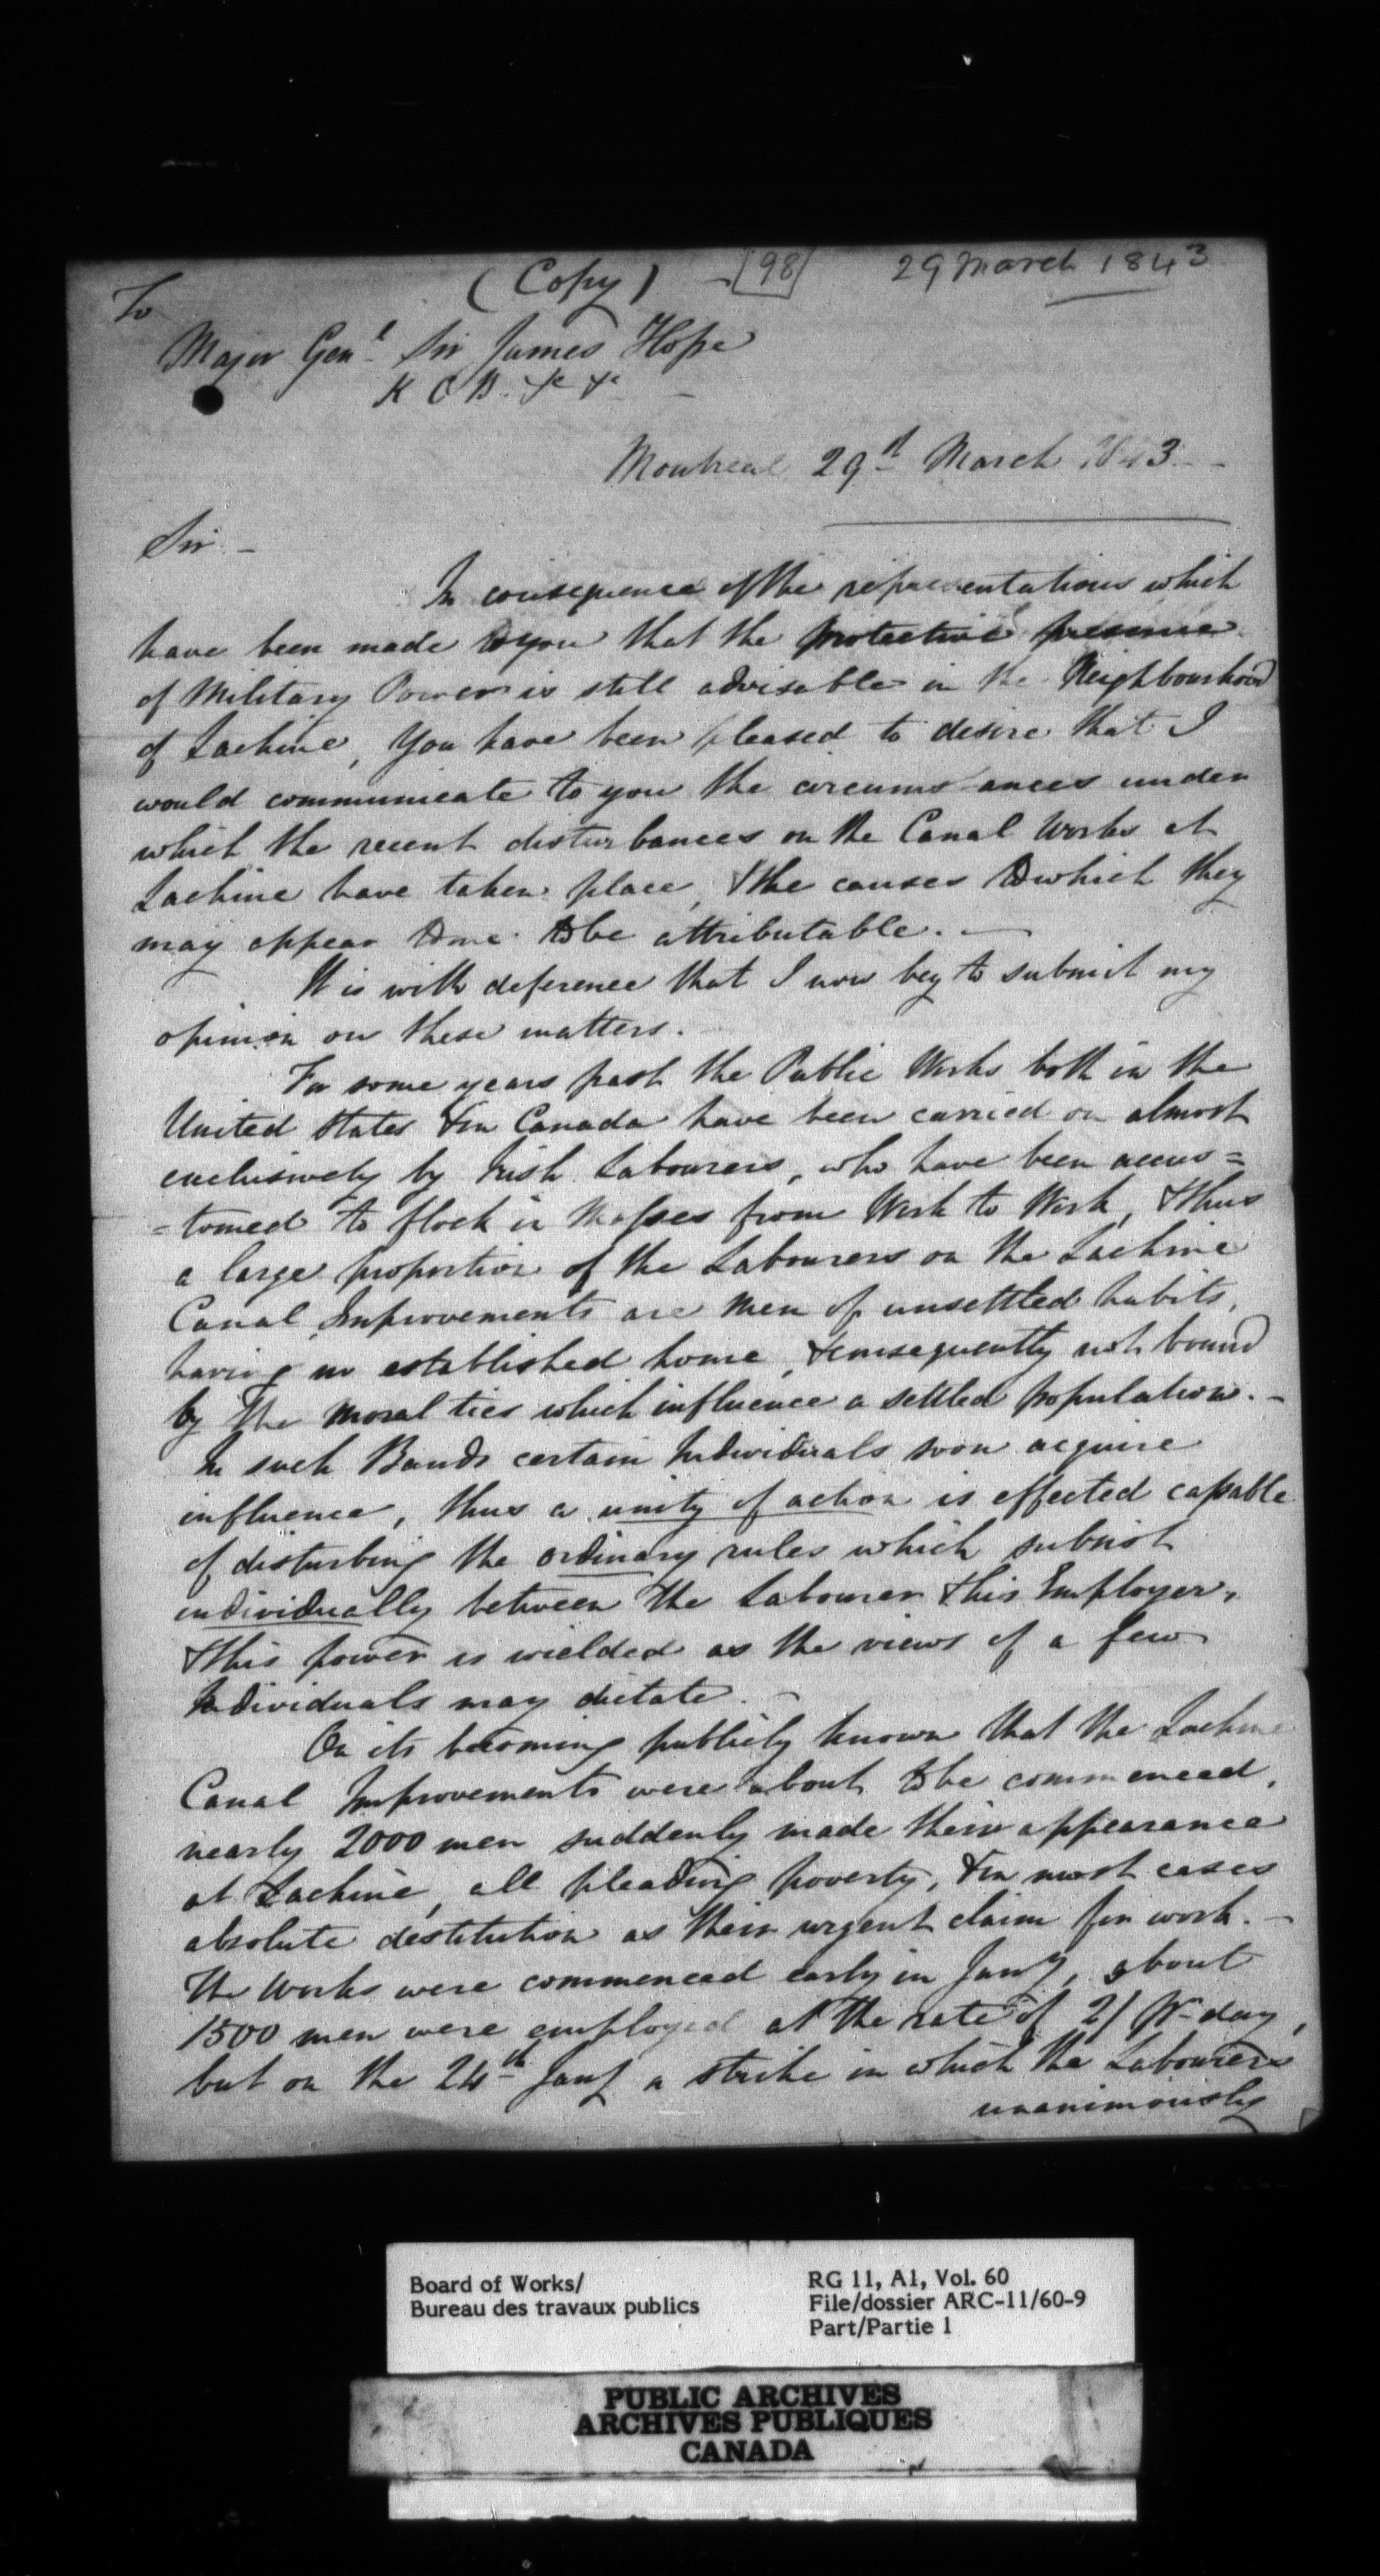 (Copy) - [98] 29 March 1843
To
Major Genl. Sir James Hope
K C B. &c &c -
Montreal 29th March 1843 - -
Sir. -
In consequence of the representations which
have been made to you that the protective presence
of Military Power is still advisable in the Neighbourhood
of Lachine, You have been pleased to desire that I
would communicate to you the circumstances under
which the recent disturbances on the Canal Works at
Lachine have taken place, & the causes to which they
may appear to me to be attributable. -
It is with deference that I now beg to submit my
opinion on these matters.
For some years past the Public Works both in the
United States & in Canada have been carried on almost
exclusively by Irish Labourers, who have been accus=
=tomed to flock in Masses from Work to Work, & thus
a large proportion of the Labourers on the Lachine
Canal Improvements are Men of unsettled habits,
having no established home, & consequently not bound
by the Moral ties which influence a settled population. -
In such Bands certain Individuals soon acquire
influence, thus a unity of action is effected capable
of disturbing the ordinary rules which subsist
individually between the Labourer & his Employer,
& this power is wielded as the views of a few
Individuals may dictate. -
On its becoming publicly known that the Lachine
Canal Improvements were about to be commenced,
nearly 2000 men suddenly made their appearance
at Lachine, all pleading poverty, & in most cases
absolute destitution as their urgent claim for work. -
The Works were commenced early in Jany, about
1500 men were employed at the rate of 2/ Pr day,
but on the 24th Jany a strike in which the Labourers
unanimously
Board of Works/
Bureau des travaux publics
RG 11, A1, Vol. 60
File/dossier ARC-11/60-9
Part/Partie 1
PUBLIC ARCHIVES
ARCHIVES PUBLIQUES
CANADA